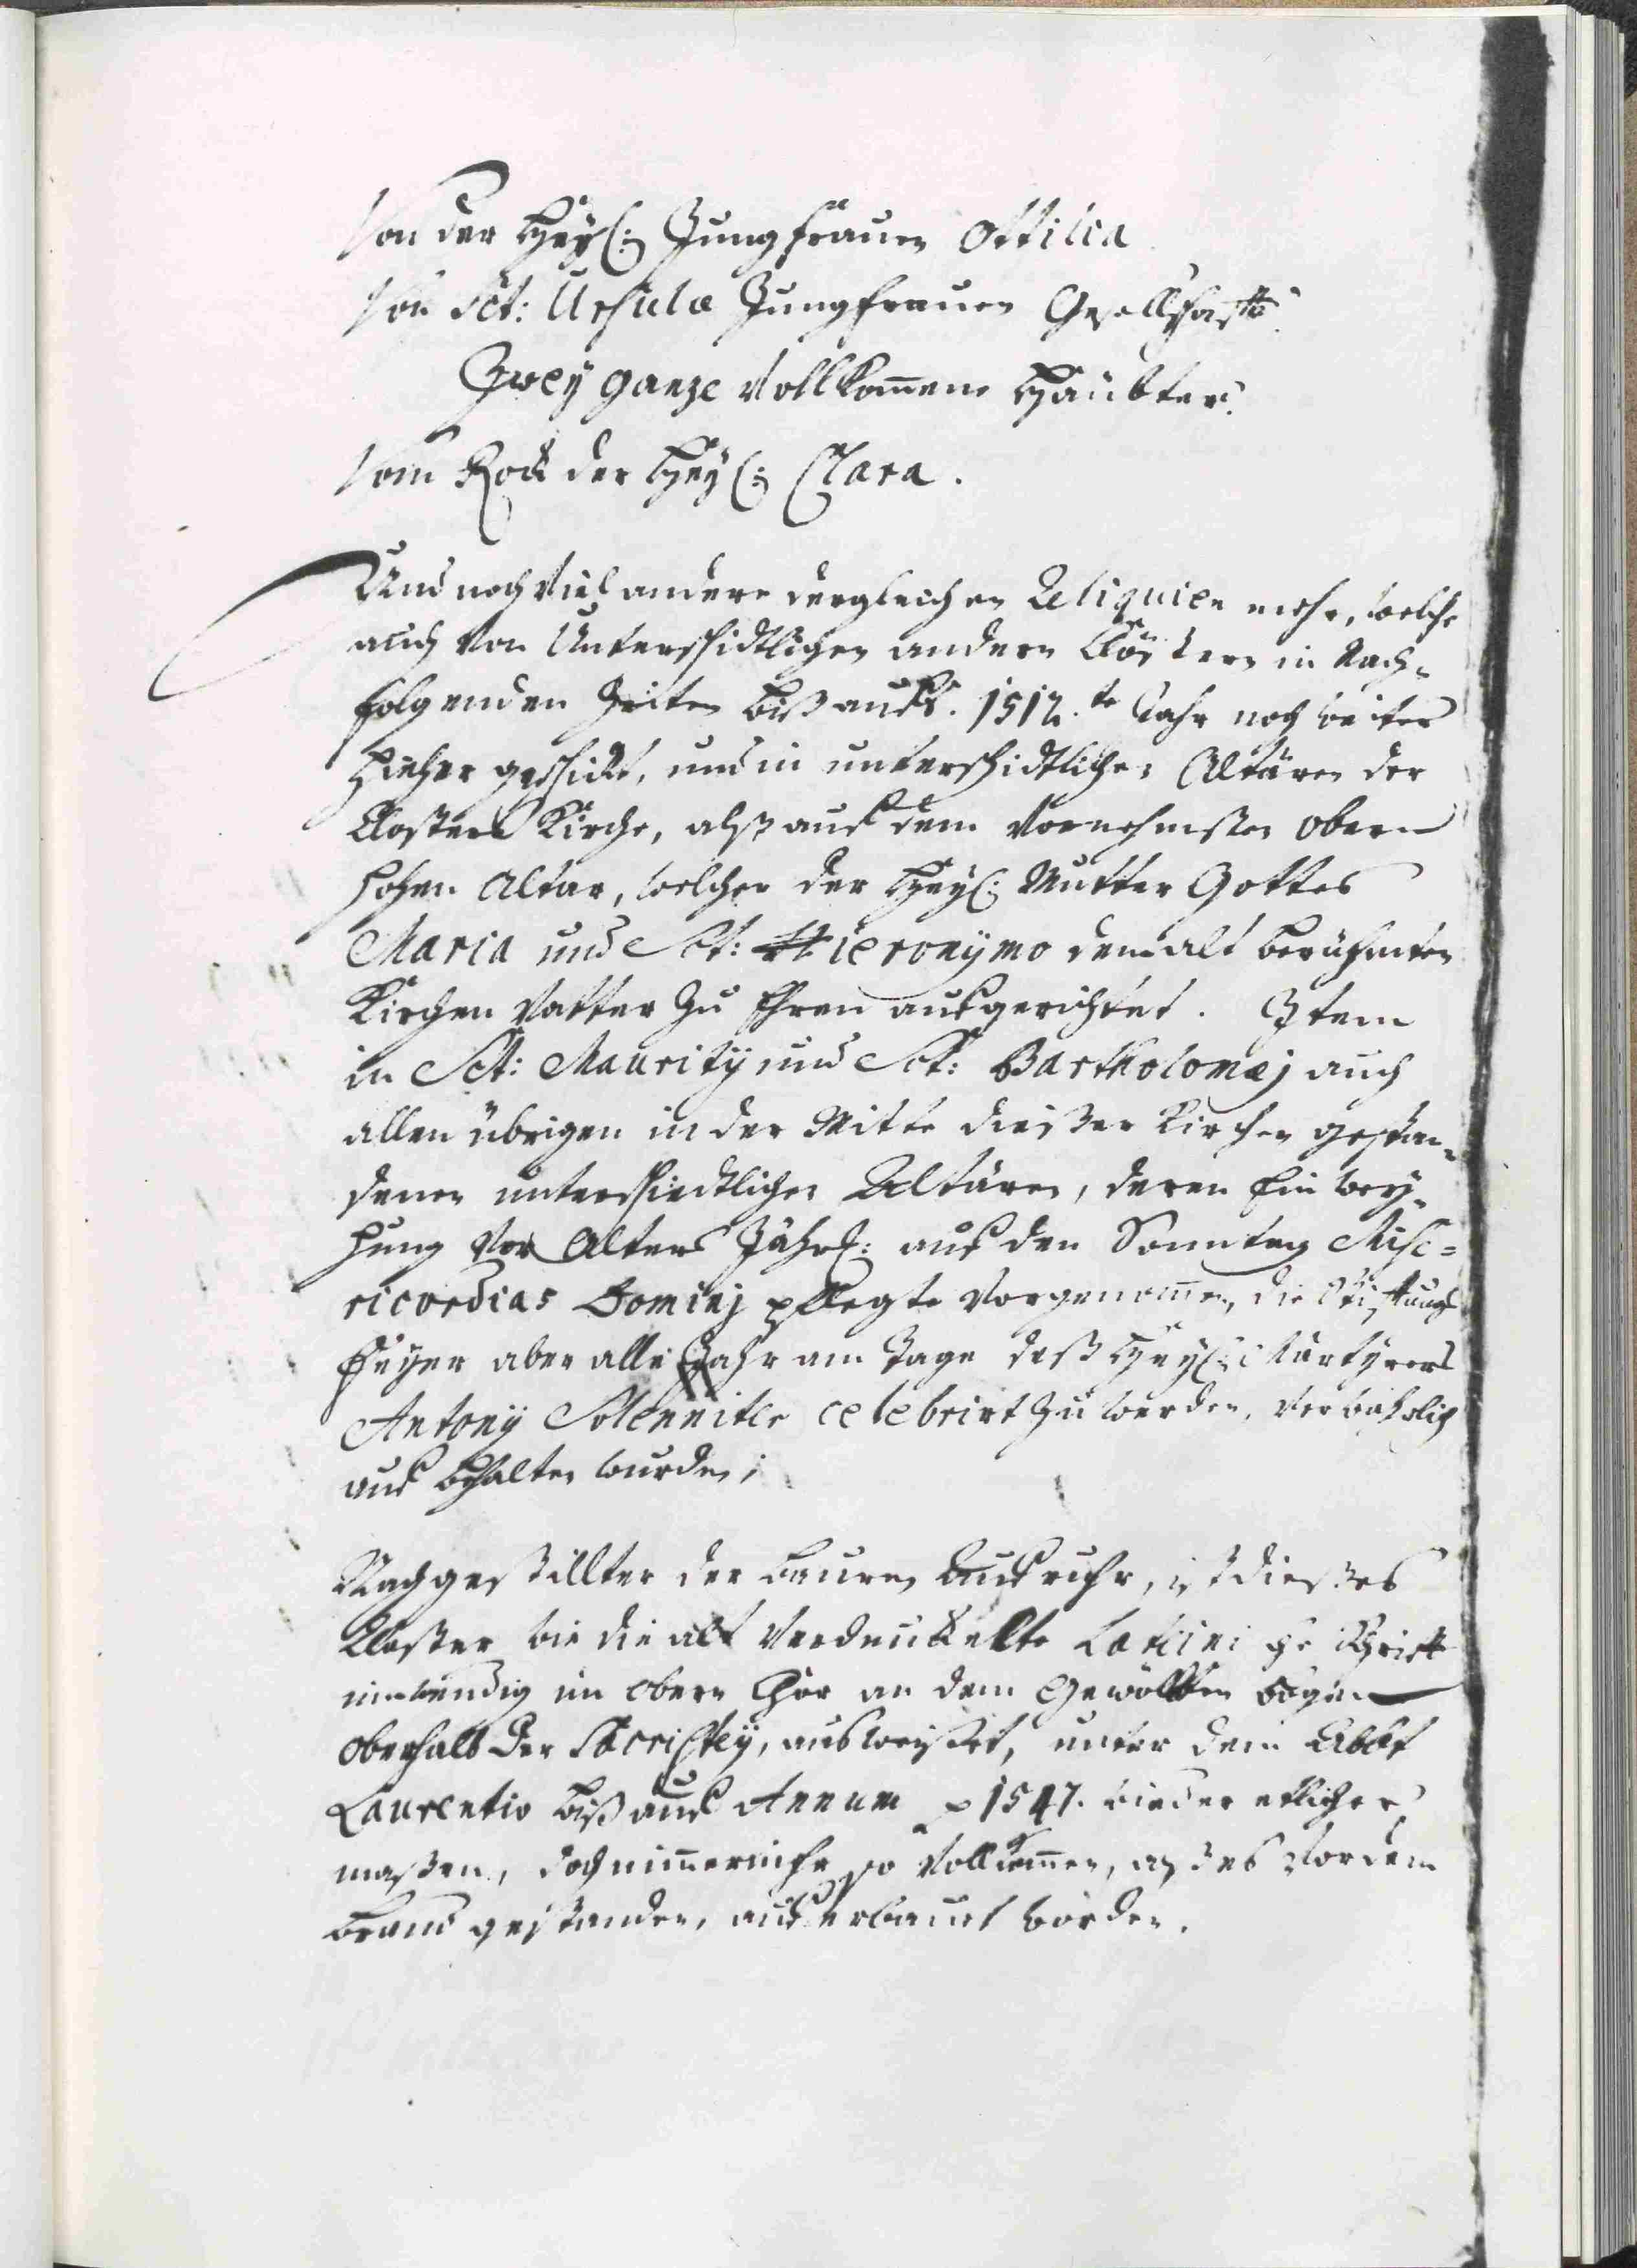 Von der Heyl: Jungfrauen Ottilia
Von Sct: Ursula Jungfrauen Gesellschafft
Zwey ganze Vollkom̄ene Häubter.
Vom Rock der Heyl: Clara.
Und noch Viel andere dergleichen Reliquien mehr, welche
auch Von Unterschidtlichen andern Clöstern in Nach-
folgenden Zeiten biß aufs. 1512.te Jahr noch weiters
hieher geschickt, und in unterschidtlichen Altären der
Closters Kirche, alß auf dem Vornehmsten obern
hohen Altar, welcher der Heyl: Mutter Gottes
Maria und Sct: Hieronymo dem alt berühmten
Kirchen Vatter zu Ehren aufgerichtet. Item
in Sct: Maurity und Sct: Bartholomæj auch
allen übrigen in der Mitte dießer Kirchen gestan-
denen unterschiedtlichen Altären, deren Einwey-
hung Vor Alters Jährl: auf den Sonntag Mise=
ricordias Dominj pflegte Vorgenom̄en, die Stifftungs
Feyer aber alle Jahr am Tage deß Heyl: Märtyrers
Antony Solenniter celebrirt zu werden,
auf behalten wurden;
Nach gestillter der Bauren Aufruhr, ist dießes
Closter wie die alt Verdunckelte Lateinische Schrifft
inwendig im obern Chor an dem Gewölben bogen
oberhalb der Sacristey, ausweißet, unter dem Abbt
Laurentio biß auf Annum 1547. wieder etlicher
maßen, doch nim̄ermehr so Vollkom̄en, als es Vor dem
Brand gestanden, auferbauet worden.